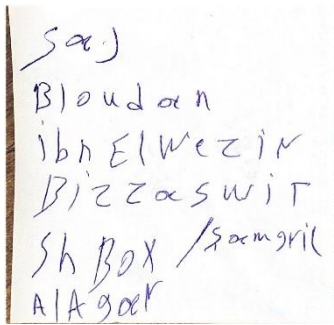 Saj
Bloudan
ibn ElWezir
BizzaSwiT
Sh Box /Samgril
AlAgar